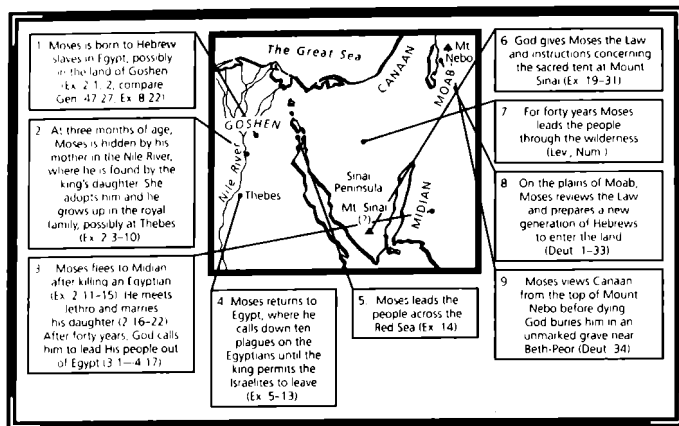 1 Moses is born to Hebrew
slaves in Egypt, possibly
in the land of Goshen
(Ex 2 1, 2, compare
Gen 47 27, Ex 8 22)
2 At three months of age,
Moses is hidden by his
mother in the Nile River,
where he is found by the
king's daughter. She
adopts him and he
grows up in the royal
family, possibly at Thebes
(Ex 2 3–10)
3 Moses flees to Midian
after killing an Egyptian
(Ex 2 11–15) He meets
Jethro and marries
his daughter (2 16–22)
After forty years, God calls
him to lead His people out
of Egypt (3 1—4 17)
The Great Sea
CANAAN
Mt
Nebo
MOAB
GOSHEN
Nile River
Thebes
Sinai
Peninsula
Mt. Sinai
(?)
MIDIAN
4 Moses returns to
Egypt, where he
calls down ten
plagues on the
Egyptians until the
king permits the
Israelites to leave
(Ex 5–13)
5. Moses leads the
people across the
Red Sea (Ex 14)
6 God gives Moses the Law
and instructions concerning
the sacred tent at Mount
Sinai (Ex 19–31)
7 For forty years Moses
leads the people
through the wilderness
(Lev, Num)
8 On the plains of Moab,
Moses reviews the Law
and prepares a new
generation of Hebrews
to enter the land
(Deut 1–33)
9 Moses views Canaan
from the top of Mount
Nebo before dying
God buries him in an
unmarked grave near
Beth-Peor (Deut 34)